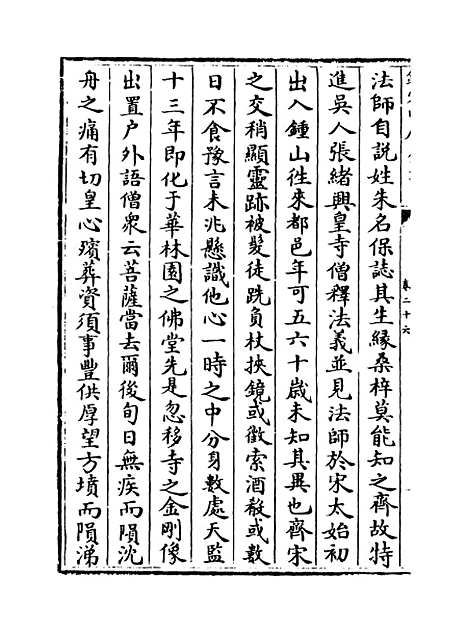 卷二十六
法師自説姓朱名保誌其生縁桑梓莫能知之齊故特
進吳人張緒興皇寺僧釋法義並見法師於宋太始初
出入鍾山往來都邑年可五六十歲未知其異也齊宋
之交稍顯靈跡被髪徒跣負杖挾鏡或徵索酒殽或數
日不食豫言未兆懸識他心一時之中分身數處天監
十三年即化于華林園之佛堂先是忽移寺之金剛像
出置户外語僧衆云菩薩當去爾後旬日無疾而隕沈
舟之痛有切皇心殯葬資須事豐供厚望方墳而隕涕